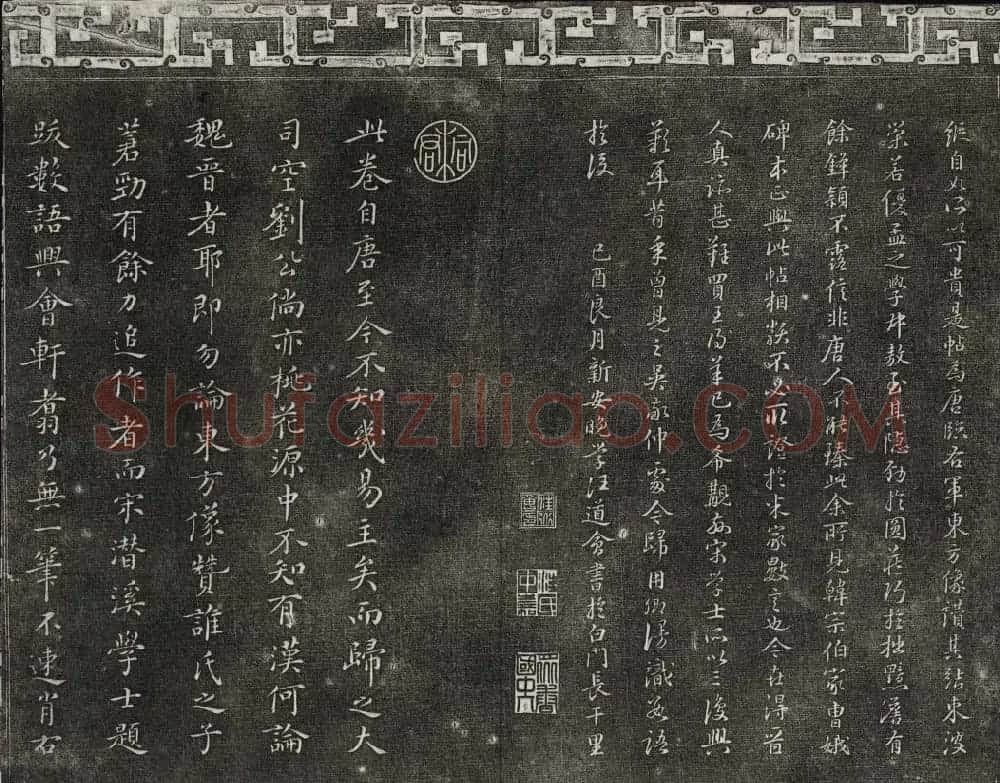 縱自如所以可貴是帖為唐臨右軍東方像讚其結束波
策若優孟之學叔敖至其隱勁於圓藏巧於拙黯澹有
餘鋒穎不露信非唐人不能臻此余所見韓宗伯家曹娥
碑本正與此帖相類不必取證於米家數言也今在得晉
人真跡甚難買王得羊已為希覯如宋學士所以三復興
歎耳昔某曾見之吳家仲處今歸用卿漫識數語
於後 己酉良月新安晚學汪道會書於白門長干里
此卷自唐至今不知幾易主矣而歸之大
司空劉公倘亦桃花源中不知有漢何論
魏晉者耶即勿論東方像贊誰氏之子
著勁有餘力追作者而宋潛溪學士題
跋數語興會軒翥乃無一筆不逮肖右
Shufaziliao.COM